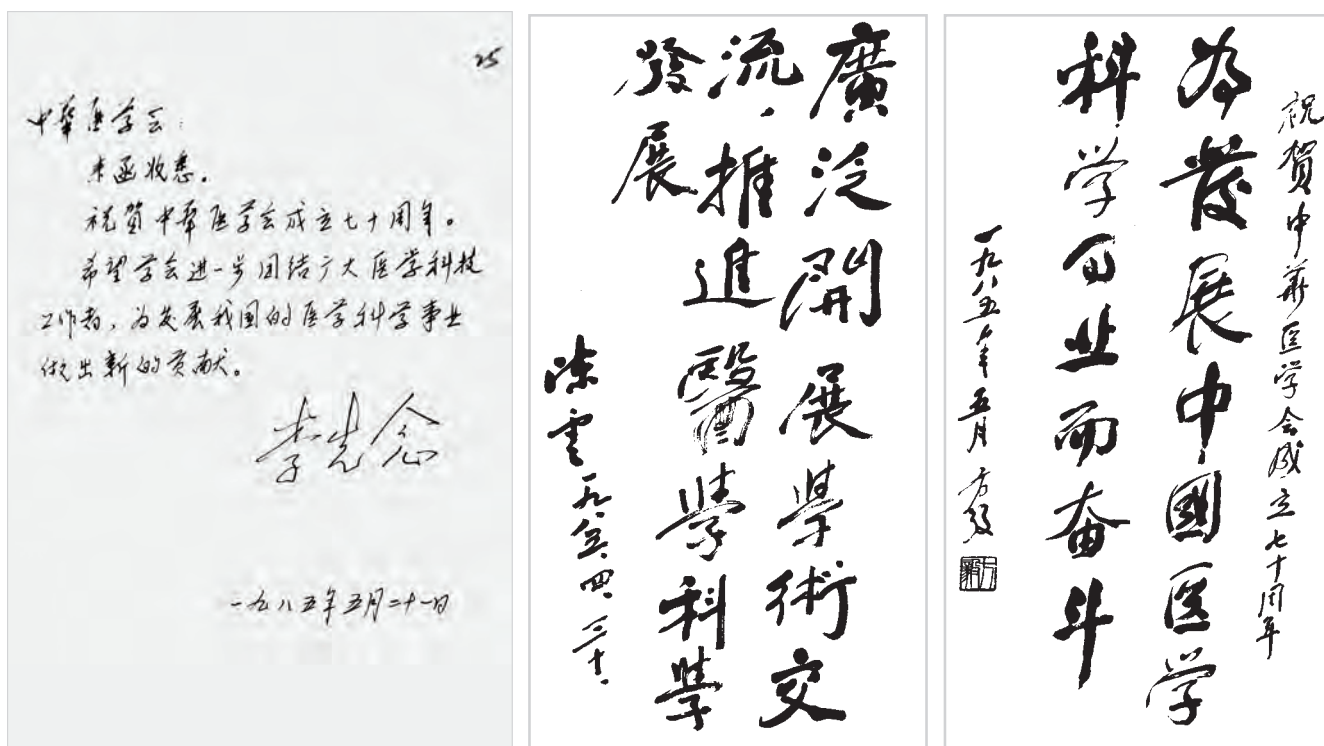 25
中華医学会:
来函收悉。
祝贺中華医学会成立七十周年。
希望学会进一步团结广大医学科技
工作者，为发展我国的医学科学事业
做出新的贡献。
李先念
一九八五年五月二十一日
廣泛開展學術交
流，推進醫學科學
發展
陈雲一九八五、四、三十、
祝賀中華医学会成立七十周年
为發展中國医学
科学事业而奋斗
一九八五年五月 方毅
方毅